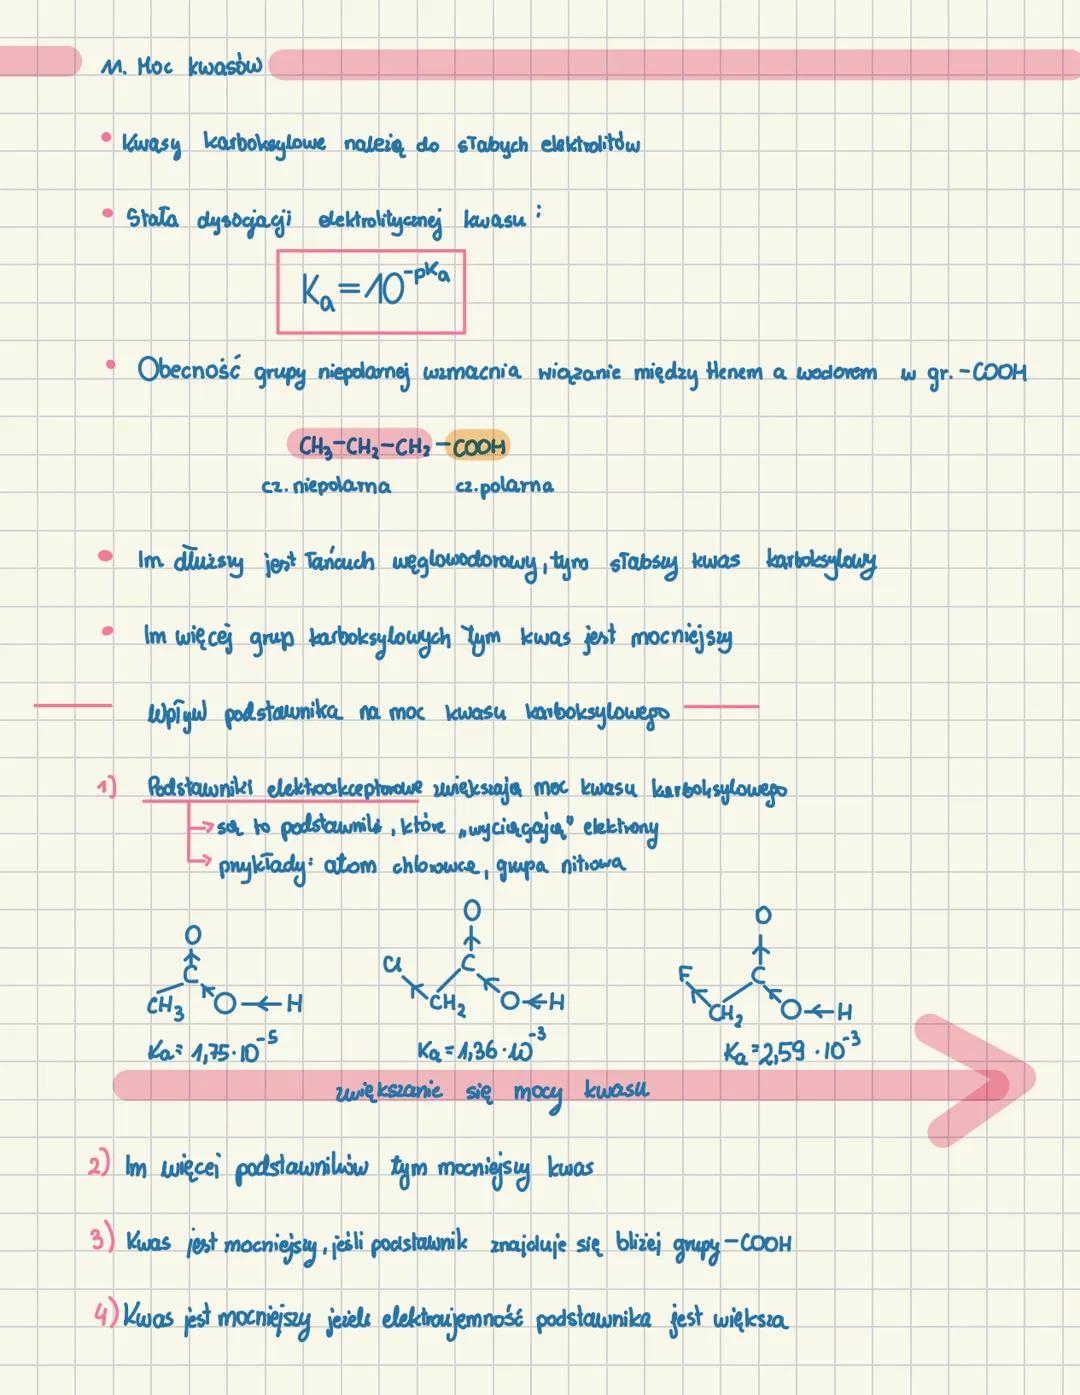 11. Moc kwasów
• Kwasy karboksylowe należą do słabych elektrolitów
• Stała dysocjacji elektrolitycznej kwasu:
Kₐ=10⁻ᵖᴷᵃ
• Obecność grupy niepolarnej wzmacnia wiązanie między tlenem a wodorem w gr. -COOH
CH₃-CH₂-CH₂-COOH
cz. niepolarna cz. polarna
• Im dłuższy jest łańcuch węglowodorowy, tym słabszy kwas karboksylowy
• Im więcej grup karboksylowych tym kwas jest mocniejszy
Wpływ podstawnika na moc kwasu karboksylowego
1) Podstawniki elektroakceptorowe zwiększają moc kwasu karboksylowego
→ są to podstawniki, które „wyciągają" elektrony
→ przykłady: atom chlorowca, grupa nitrowa
O O O
C Cl C F C
CH₃ O ← H CH₂ O ← H CH₂ O ← H
Kₐ= 1,75·10⁻⁵ Kₐ=1,36·10⁻³ Kₐ=2,59·10⁻³
zwiększanie się mocy kwasu
2) Im więcej podstawników tym mocniejszy kwas
3) Kwas jest mocniejszy, jeśli podstawnik znajduje się bliżej grupy -COOH
4) Kwas jest mocniejszy jeżeli elektroujemność podstawnika jest większa